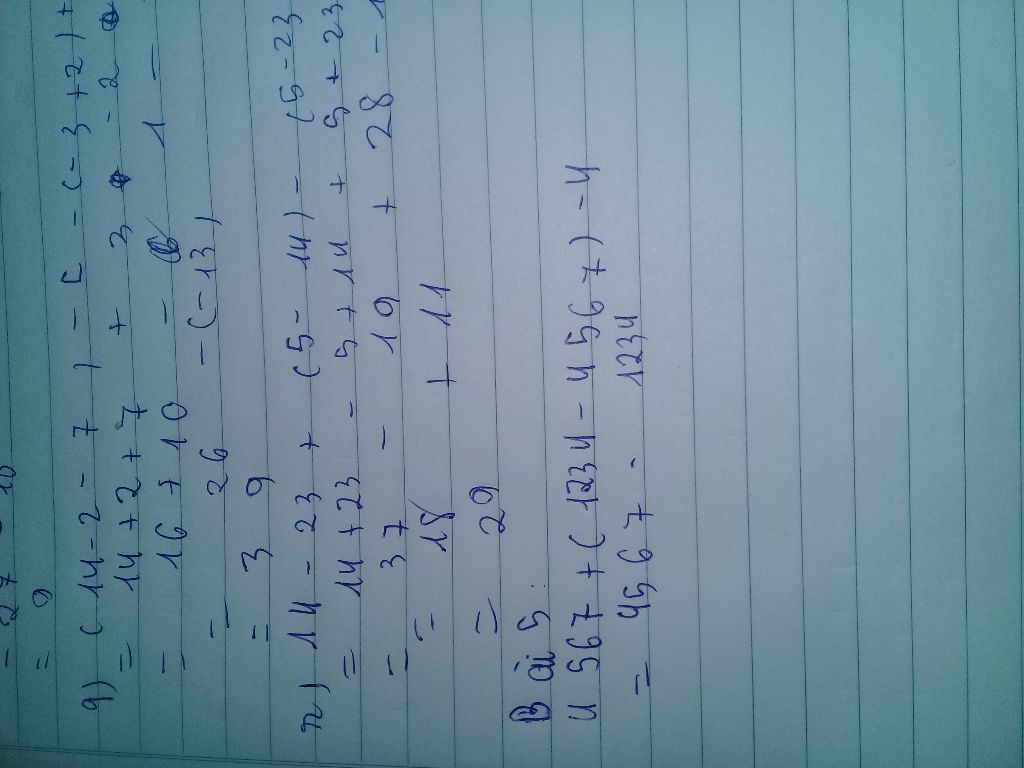 = 27 - 10
= 9
q) (14-2-7) - [-(-3+2)+
= 14+2+7 + 3 -2
= 16+10 - 1 -
= 26 -(-13)
= 39
r) 14-23 + (5-14) - (5-23
= 14+23 - 5+14 + 5+23
= 37 - 19 + 28 - 1
= 18 + 11
= 29
Bài 5:
4567+(1234-4567)-4
= 4567 - 1234